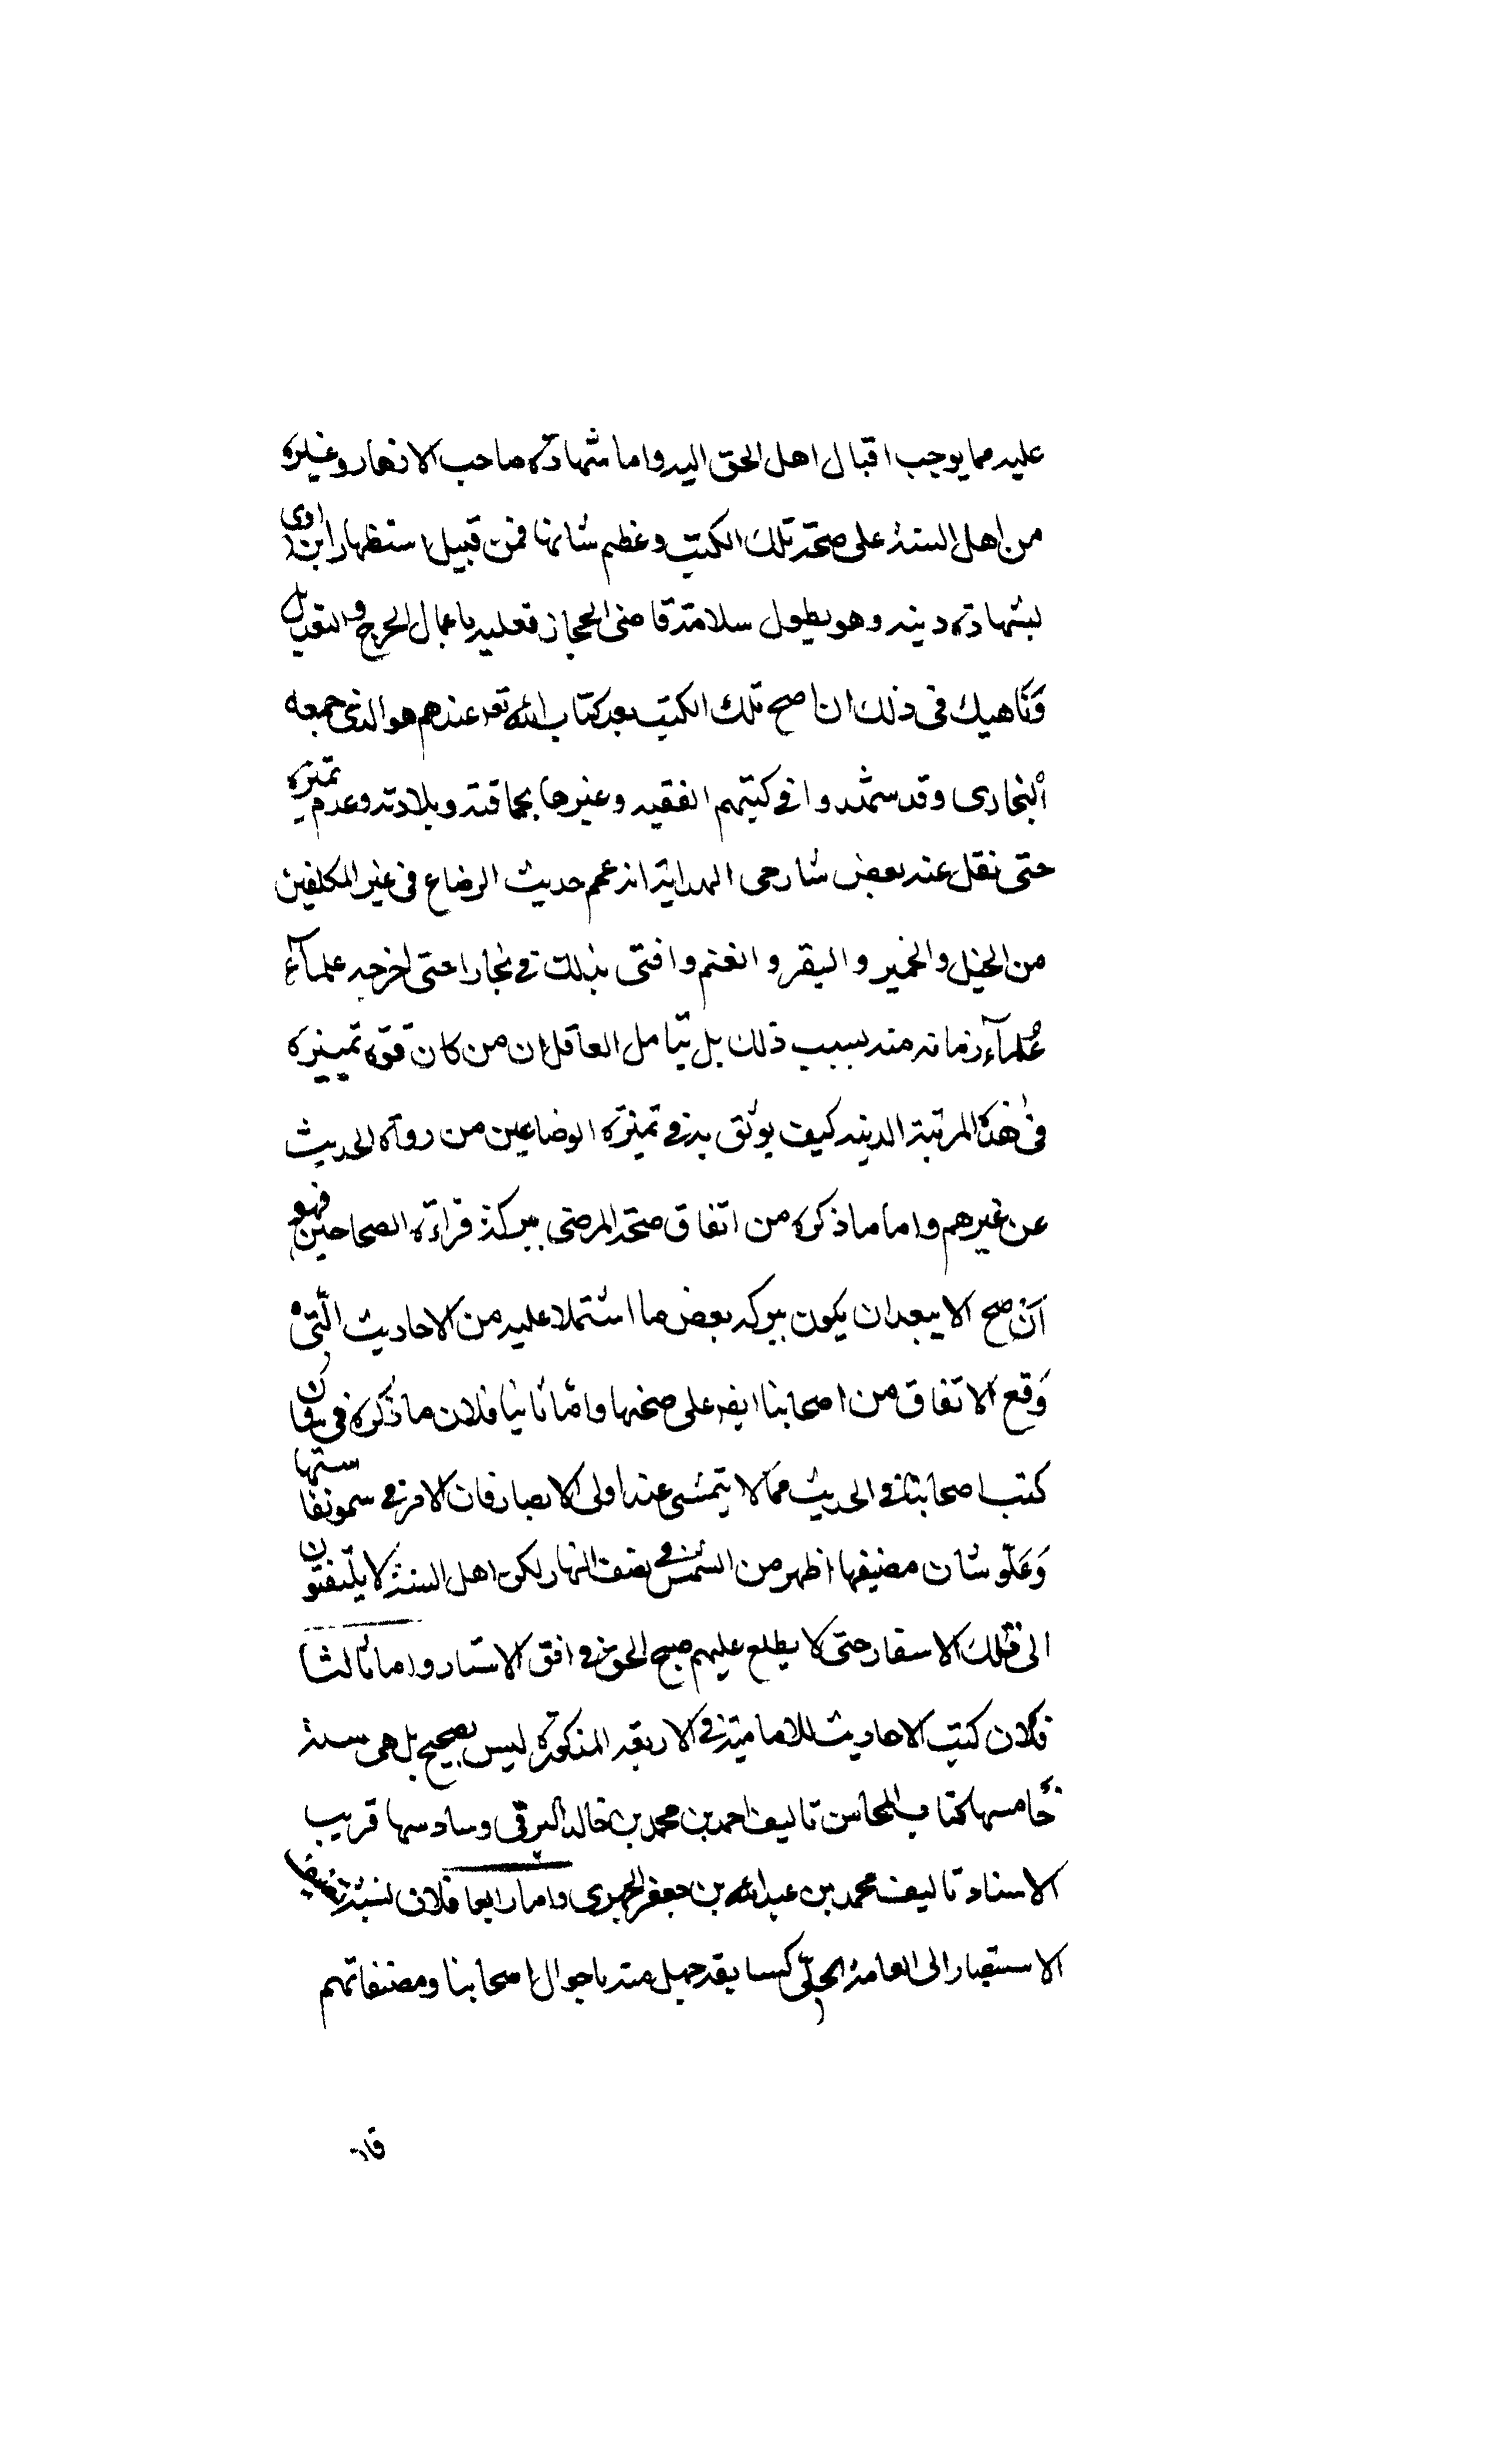 عليه مما يوجب اقبال اهل الحق اليه واما شهادة صاحب الازهار وغيره
من اهل السنة على صحة تلك الكتب وعظم شانها فمن قبيل استظهار ابن اوى
بشهادة دينه وهو بطول سلامة قاضى الحجاز فعليه باعمال الجرح والتعديل
وناهيك فى ذلك ان اصح تلك الكتب بعد كتاب الله تعه عندهم هو الذى جمعه
البخارى وقد شهدوا فى كتبهم الفقيه وغيرها بحماقته وبلادته وعدم تميزه
حتى نقل عنه بعض شارحى الهداية انه عمم حديث الرضاع فى غير المكلفين
من الخيل والحمير والبقر والغنم وافتى بذلك فى بخارا حتى اخرجه علمآء
علمآء زمانه منه بسبب ذلك بل يتامل العاقل ان من كان قوة تمييزه
فى هذه المرتبة الدينه كيف يوثق به فى تميزه الوضاعين من رواة الحديث
عن غيرهم واما ما ذكره من اتفاق صحة المرضى ببركة قراءة الصحاحين فهو
ان صح لا يبعد ان يكون ببركه بعض ما اشتملا عليه من الاحاديث التى
وقع الاتفاق من اصحابنا ايضه على صحتها واما ثانيا فلان ما ذكره فى شان
كتب اصحابنا فى الحديث مما لا يتمشى عند اولى الابصار فان الامر فى سمو نفاستها
وعلو شان مصنيفها اظهر من الشمس فى نصف النهار لكن اهل السنة لا يلتفتون
الى تلك الاسفار حتى لا يطلع عليهم صبح الحق من افق الاستار واما ثالثا
فلان كتب الاحاديث للامامية فى الاربعه المذكورة ليس بصحيح بل هى ستة
خامسها كتاب المحاسن تاليف احمد بن محمد بن خالد البرقى وسادسها قريب
الاسناد تاليف محمد بن عبد الله بن جعفر الحميرى واما رابعا فلان نسبة تصنيف
الاستبصار الى العامة الحلى كسابقه جهل منه باحوال اصحابنا ومصنفاتهم